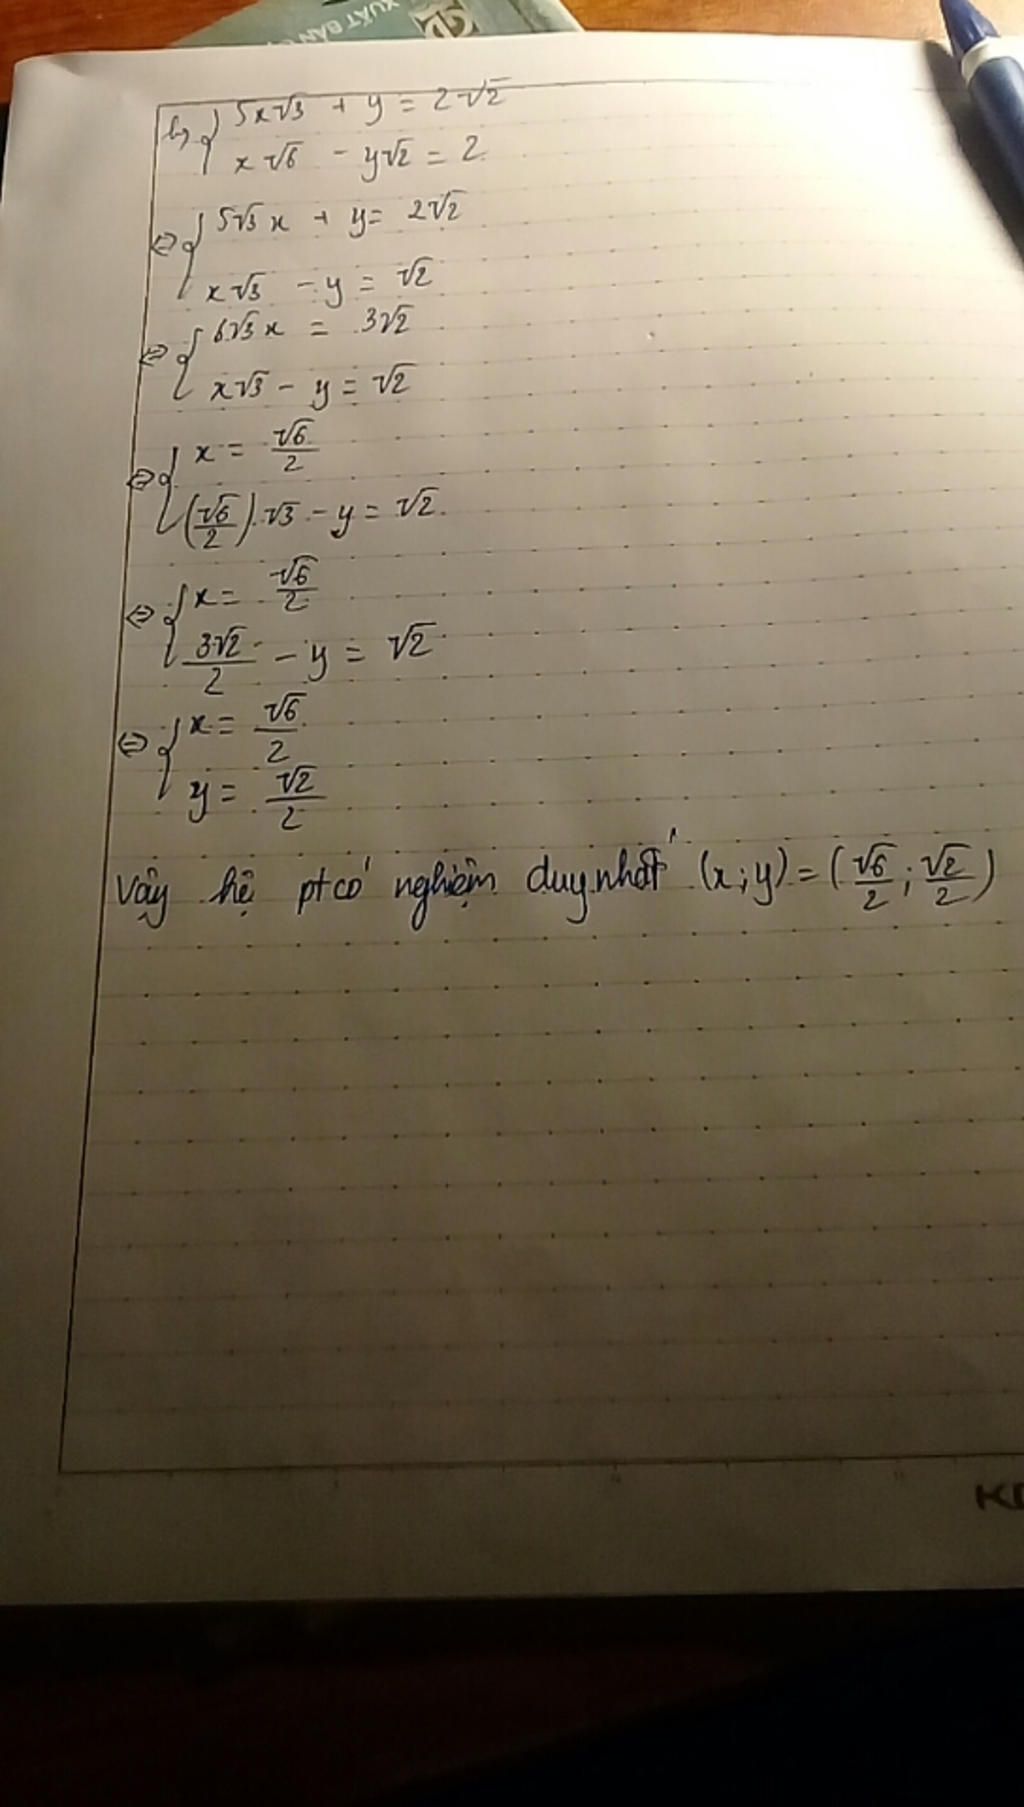 XUẤT BẢN
b, { 5x√3 + y = 2√2
x√6 - y√2 = 2
⇔ { 5√3 x + y = 2√2
x√3 - y = √2
⇔ { 6√3 x = 3√2
x√3 - y = √2
⇔ { x = √6/2
(√6/2).√3 - y = √2
⇔ { x = √6/2
3√2/2 - y = √2
⇔ { x = √6/2
y = √2/2
Vậy hệ pt có nghiệm duy nhất (x;y) = (√6/2; √2/2)